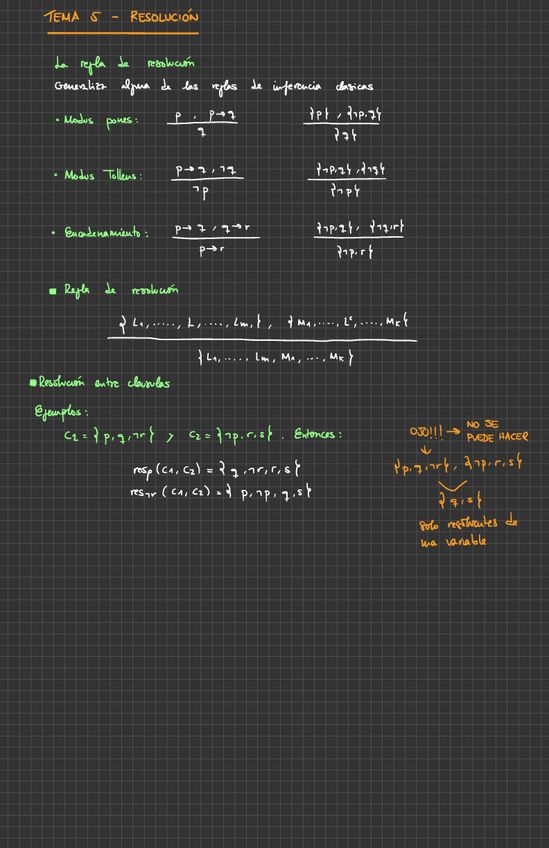 TEMA 5 - RESOLUCIÓN
La regla de resolución
Generaliza alguna de las reglas de inferencia clasicas
• Modus pones: p , p→q / q {p} , {¬p,q} / {q}
• Modus Tollens: p→q , ¬q / ¬p {¬p,q} , {¬q} / {¬p}
• Encadenamiento: p→q , q→r / p→r {¬p,q} , {¬q,r} / {¬p,r}
■ Regla de resolución
{L1,....., L,....., Lm,} , {M1,....., Lᶜ,...., MK}
{L1,..... Lm, M1,..., MK}
■ Resolución entre clausulas
Ejemplos:
C1 = {p, q, ¬r} y C2 = {¬p, r, s} . Entonces:
resp (C1, C2) = {q, ¬r, r, s}
res¬r (C1, C2) = {p, ¬p, q, s}
OJO!!! → NO SE
PUEDE HACER
↓
{p, q, ¬r} , {¬p, r, s}
{q, s}
solo resolventes de
una variable